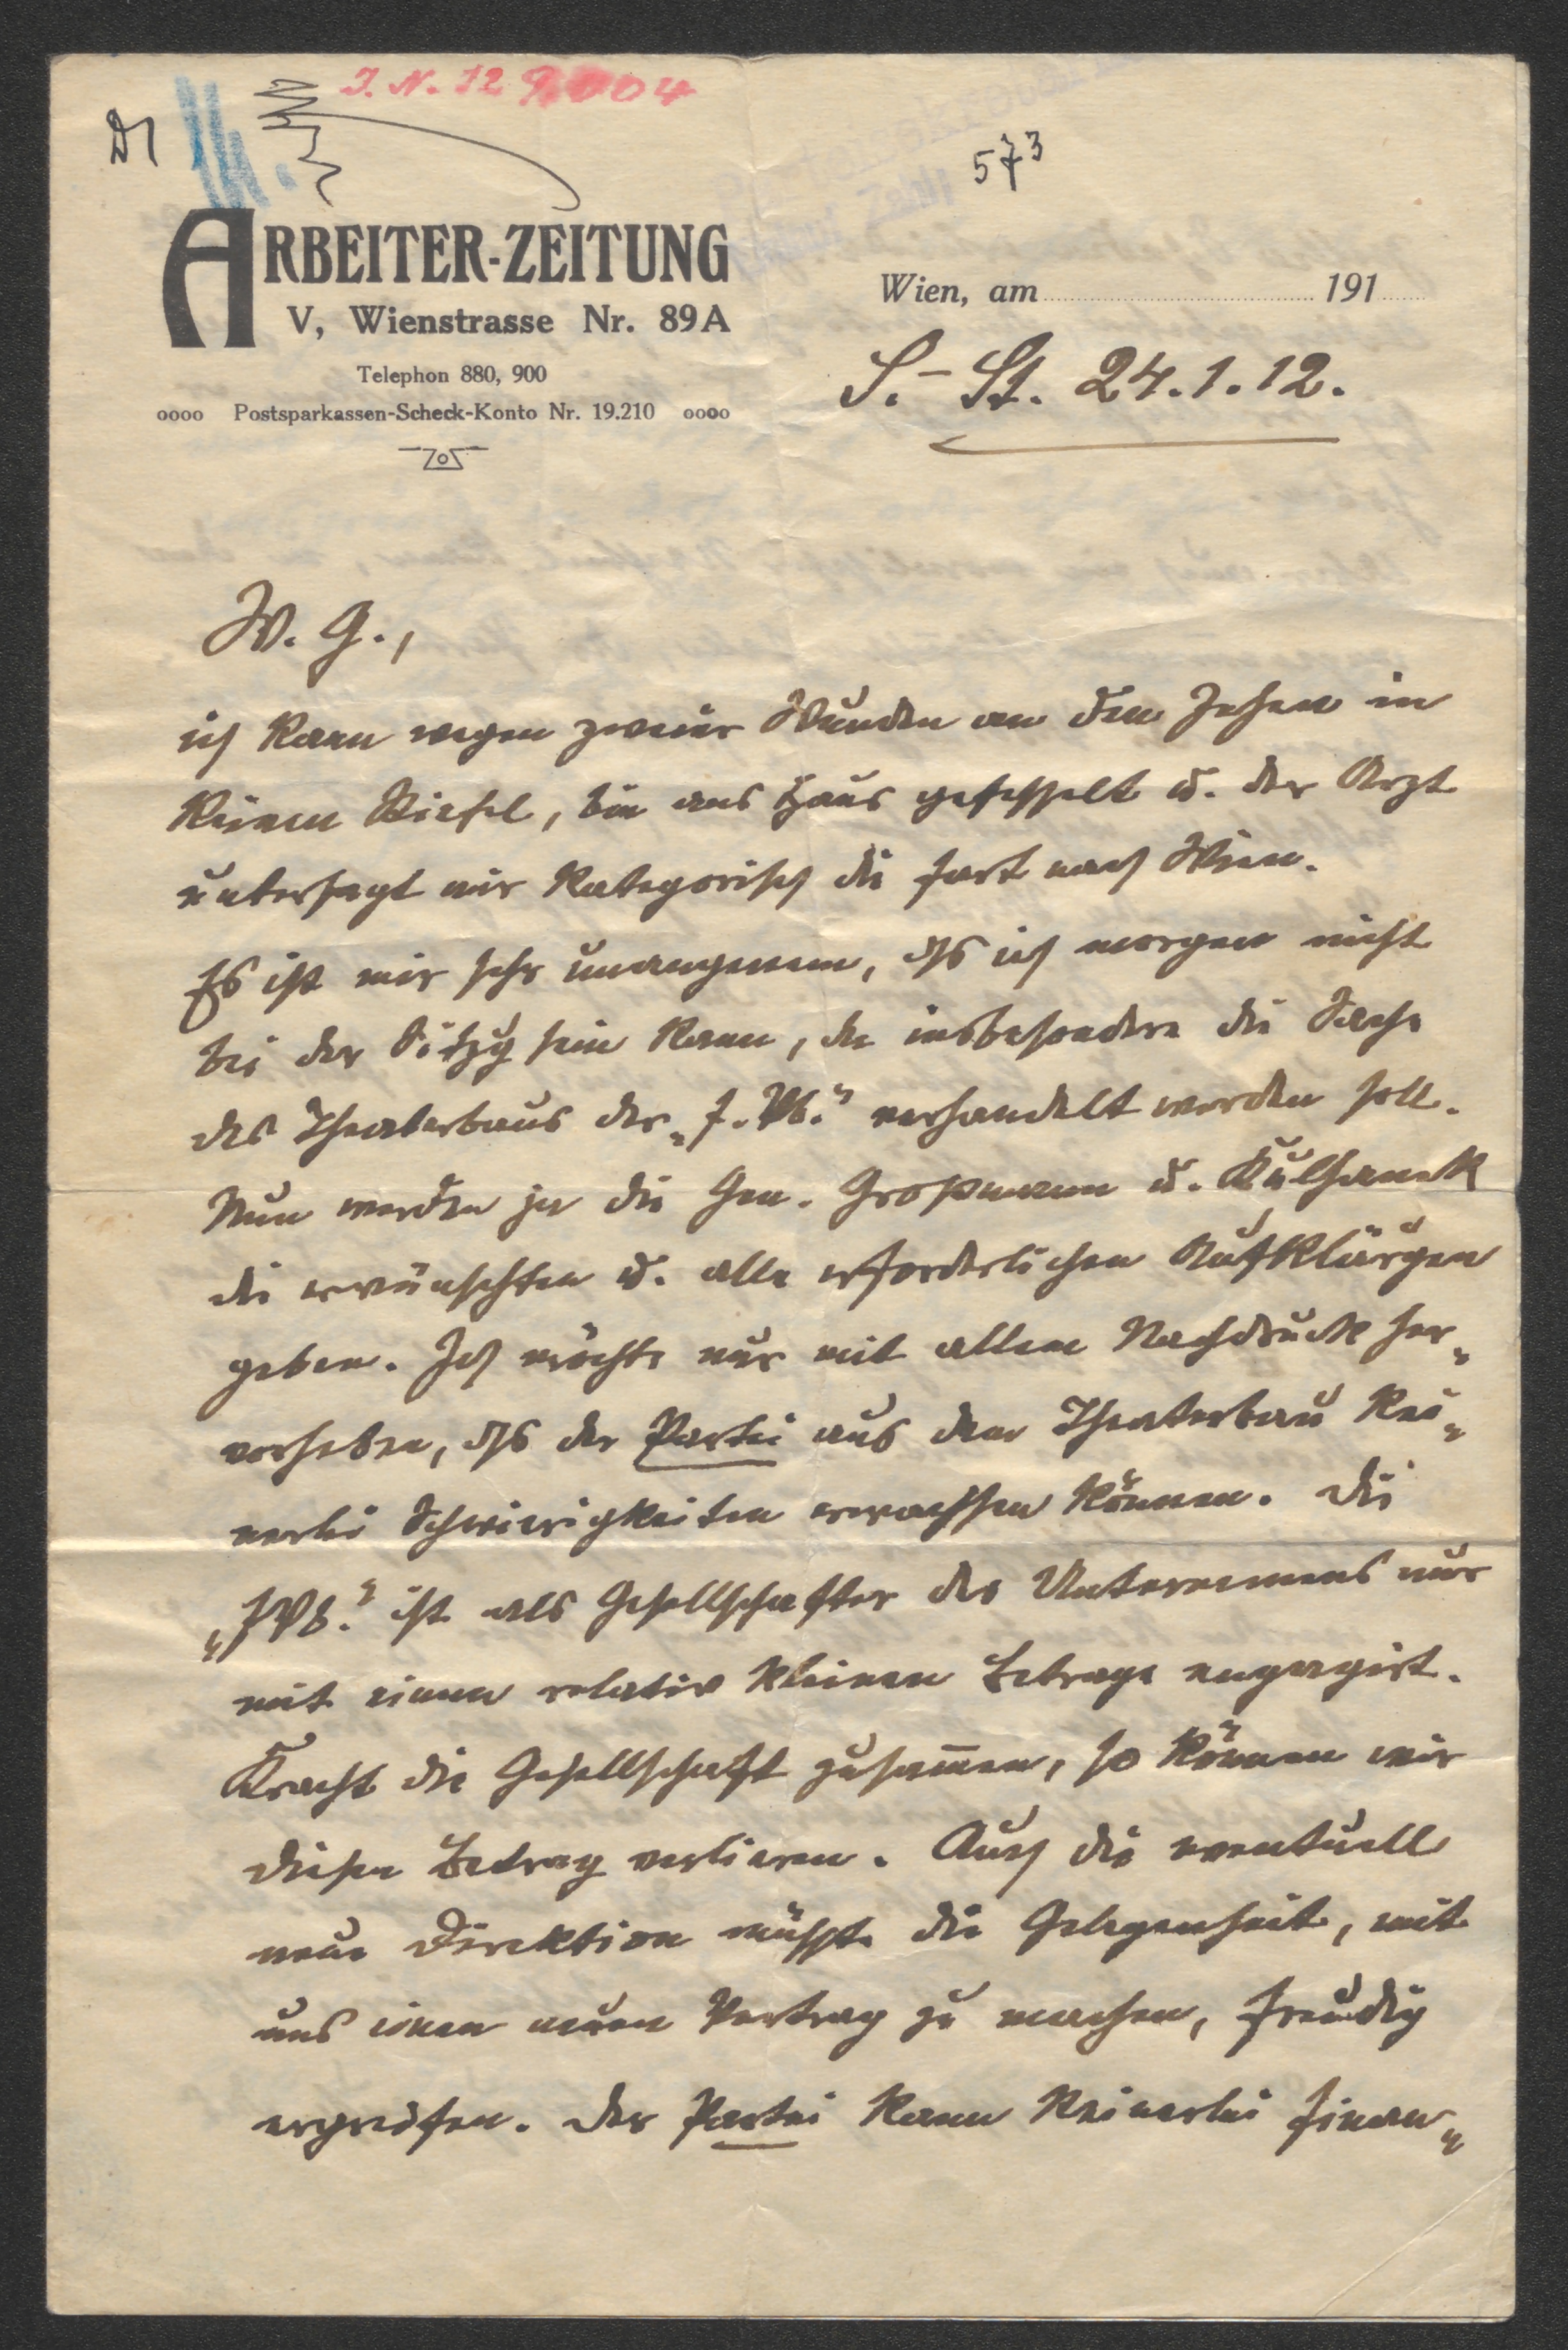 J. N. 129004
573
ARBEITER-ZEITUNG
V, Wienstrasse Nr. 89A
Telephon 880, 900
oooo Postsparkassen-Scheck-Konto Nr. 19.210 oooo
Wien, am 191
S.- St. 24.1.12.
W. G.,
ich kann wegen zweier Wunden an den Zehen in
keinen Stiefel, bin ans Haus gefesselt u. der Arzt
untersagt mir kategorisch die Fart nach Wien.
Es ist mir sehr unangenem, dß ich morgen nicht
bei der Sitzg sein kann, da insbesondere die Sache
des Theaterbaus der „F. Vb." verhandelt werden soll.
Nun werden ja die Gen. Großmann u. Kulhanek
die erwünschten u. alle erforderlichen Aufklärgen
geben. Ich möchte nur mit allem Nachdruck her„
vorheben, dß der Partei aus dem Theaterbau kei„
nerlei Schwierigkeiten erwachsen können. Die
„FVb." ist als Gesellschafter des Unternemens nur
mit einem relativ kleinen Betrage engagirt.
Kracht die Gesellschaft zusam̄en, so können wir
diesen Betrag verlieren. Auch die eventuelle
neue Direktion müsste die Gelegenheit, mit
uns einen neuen Vertrag zu machen, freudig
ergreifen. Der Partei kann keinerlei finan„